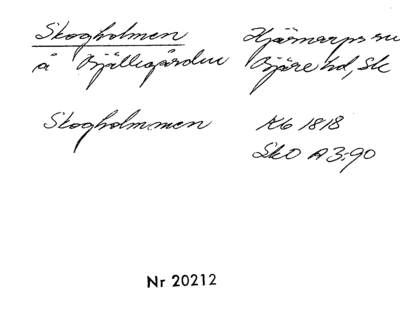 Skogholmen Hjärnarps sn
å Bjällegården Bjäre hd, Sk
Skogholmmen Kb 1818
SkO A3:90
Nr 20212